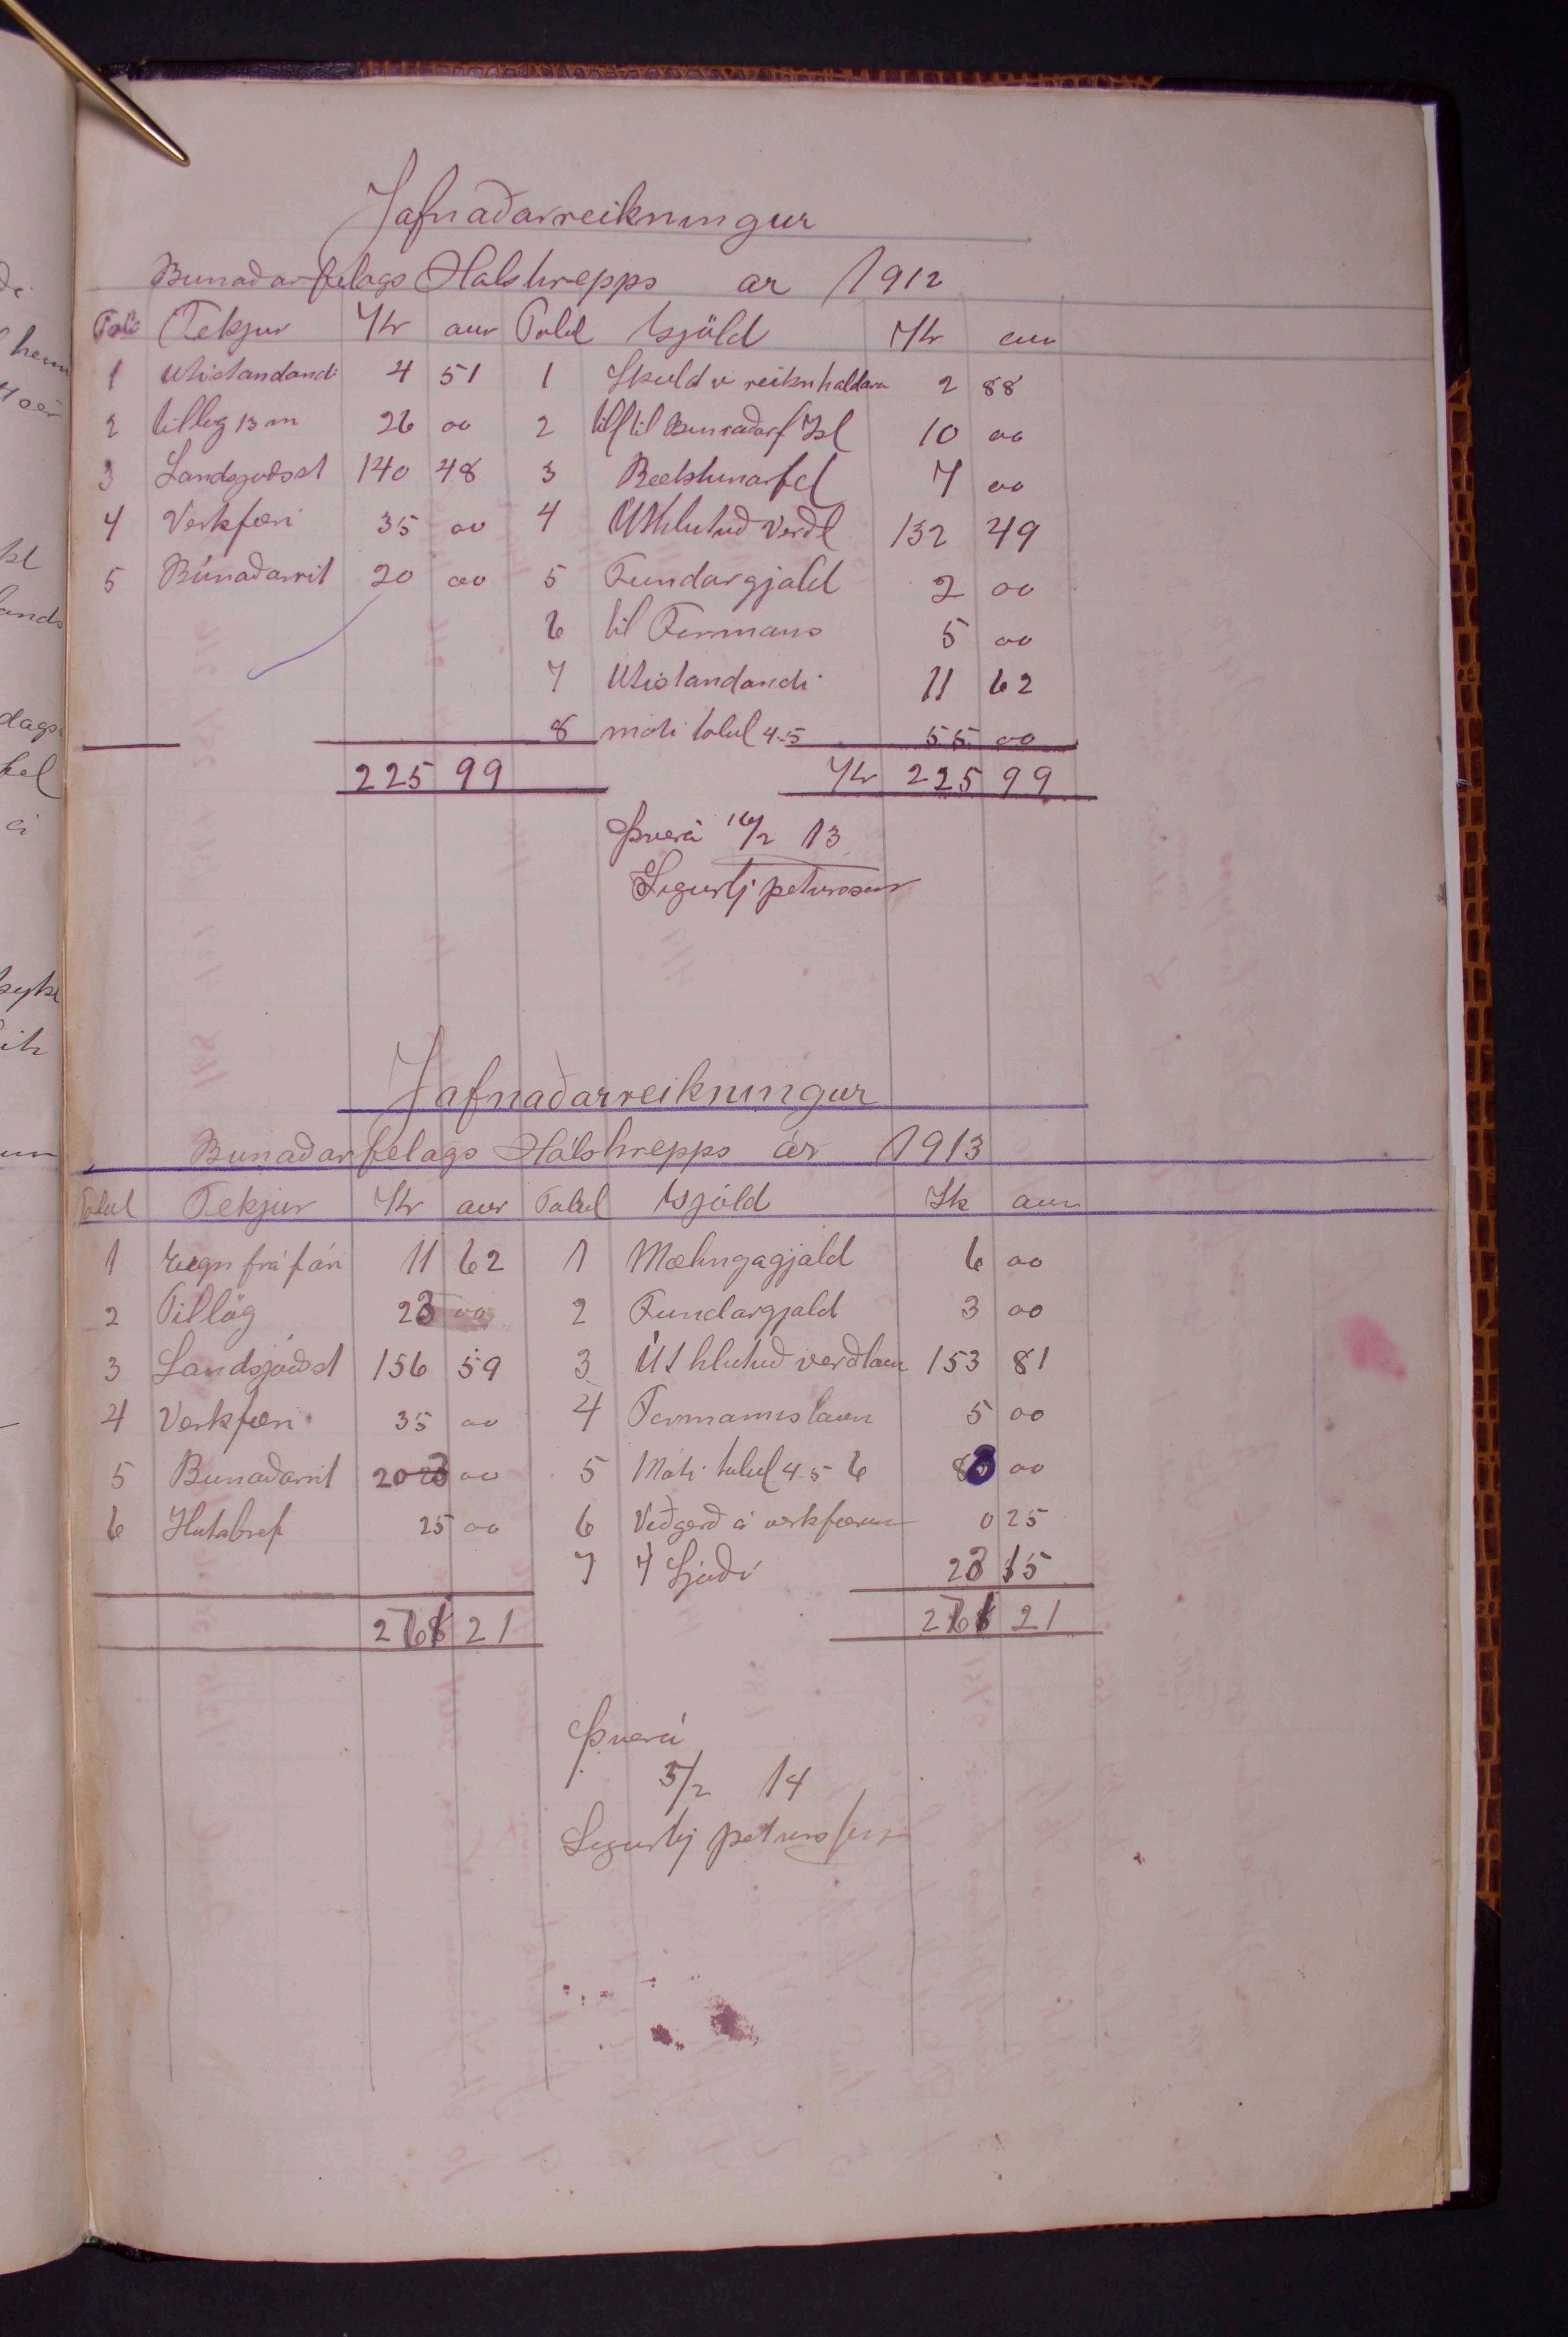 Jafnaðarreikningur
Bunaðarfelags Halshrepps ar 1912
Tekjur Kr aur Tolul Gjöld Kr aur
1 Utistandandi 4 51 1 Skuld v reiknhaldara 2 88
2 tillog 13 m 26 00 2 till til Bunaðarf Isl 10 00
3 Landsjoðsst 140 48 3 Ræktunarfel 7 00
4 Verkfæri 35 00 4 Uthlutuð Verðl 132 49
5 Búnaðarrit 20 00 5 Fundargjald 2 00
6 til Formans 5 00
7 Utistandandi 11 62
8 móti tolul 4-5 55 00
225 99 Kr 225 99
Þverá 16/2 13
Sigurbj petursson
Jafnaðarreikningur
Bunaðarfelags Hálshrepps ár 1913
Tolul Tekjur Kr aur Tolul Gjöld Kr aur
1 Eign frá f ári 11 62 1 Mælingagjald 6 00
2 Tillög 23 00 2 Fundargjald 3 00
3 Landsjóðst 156 59 3 Út hlutuð verðlaun 153 81
4 Verkfæri 35 00 4 Formannslaun 5 00
5 Bunaðarrit 20 00 5 Móti tolul 4 5 6 80 00
6 Hlutabref 25 00 6 Viðgerð á verkfærum 0 25
7 Í Sjóði 23 15
271 21 271 21
Þverá
5/2 14
Sigurbj petursson